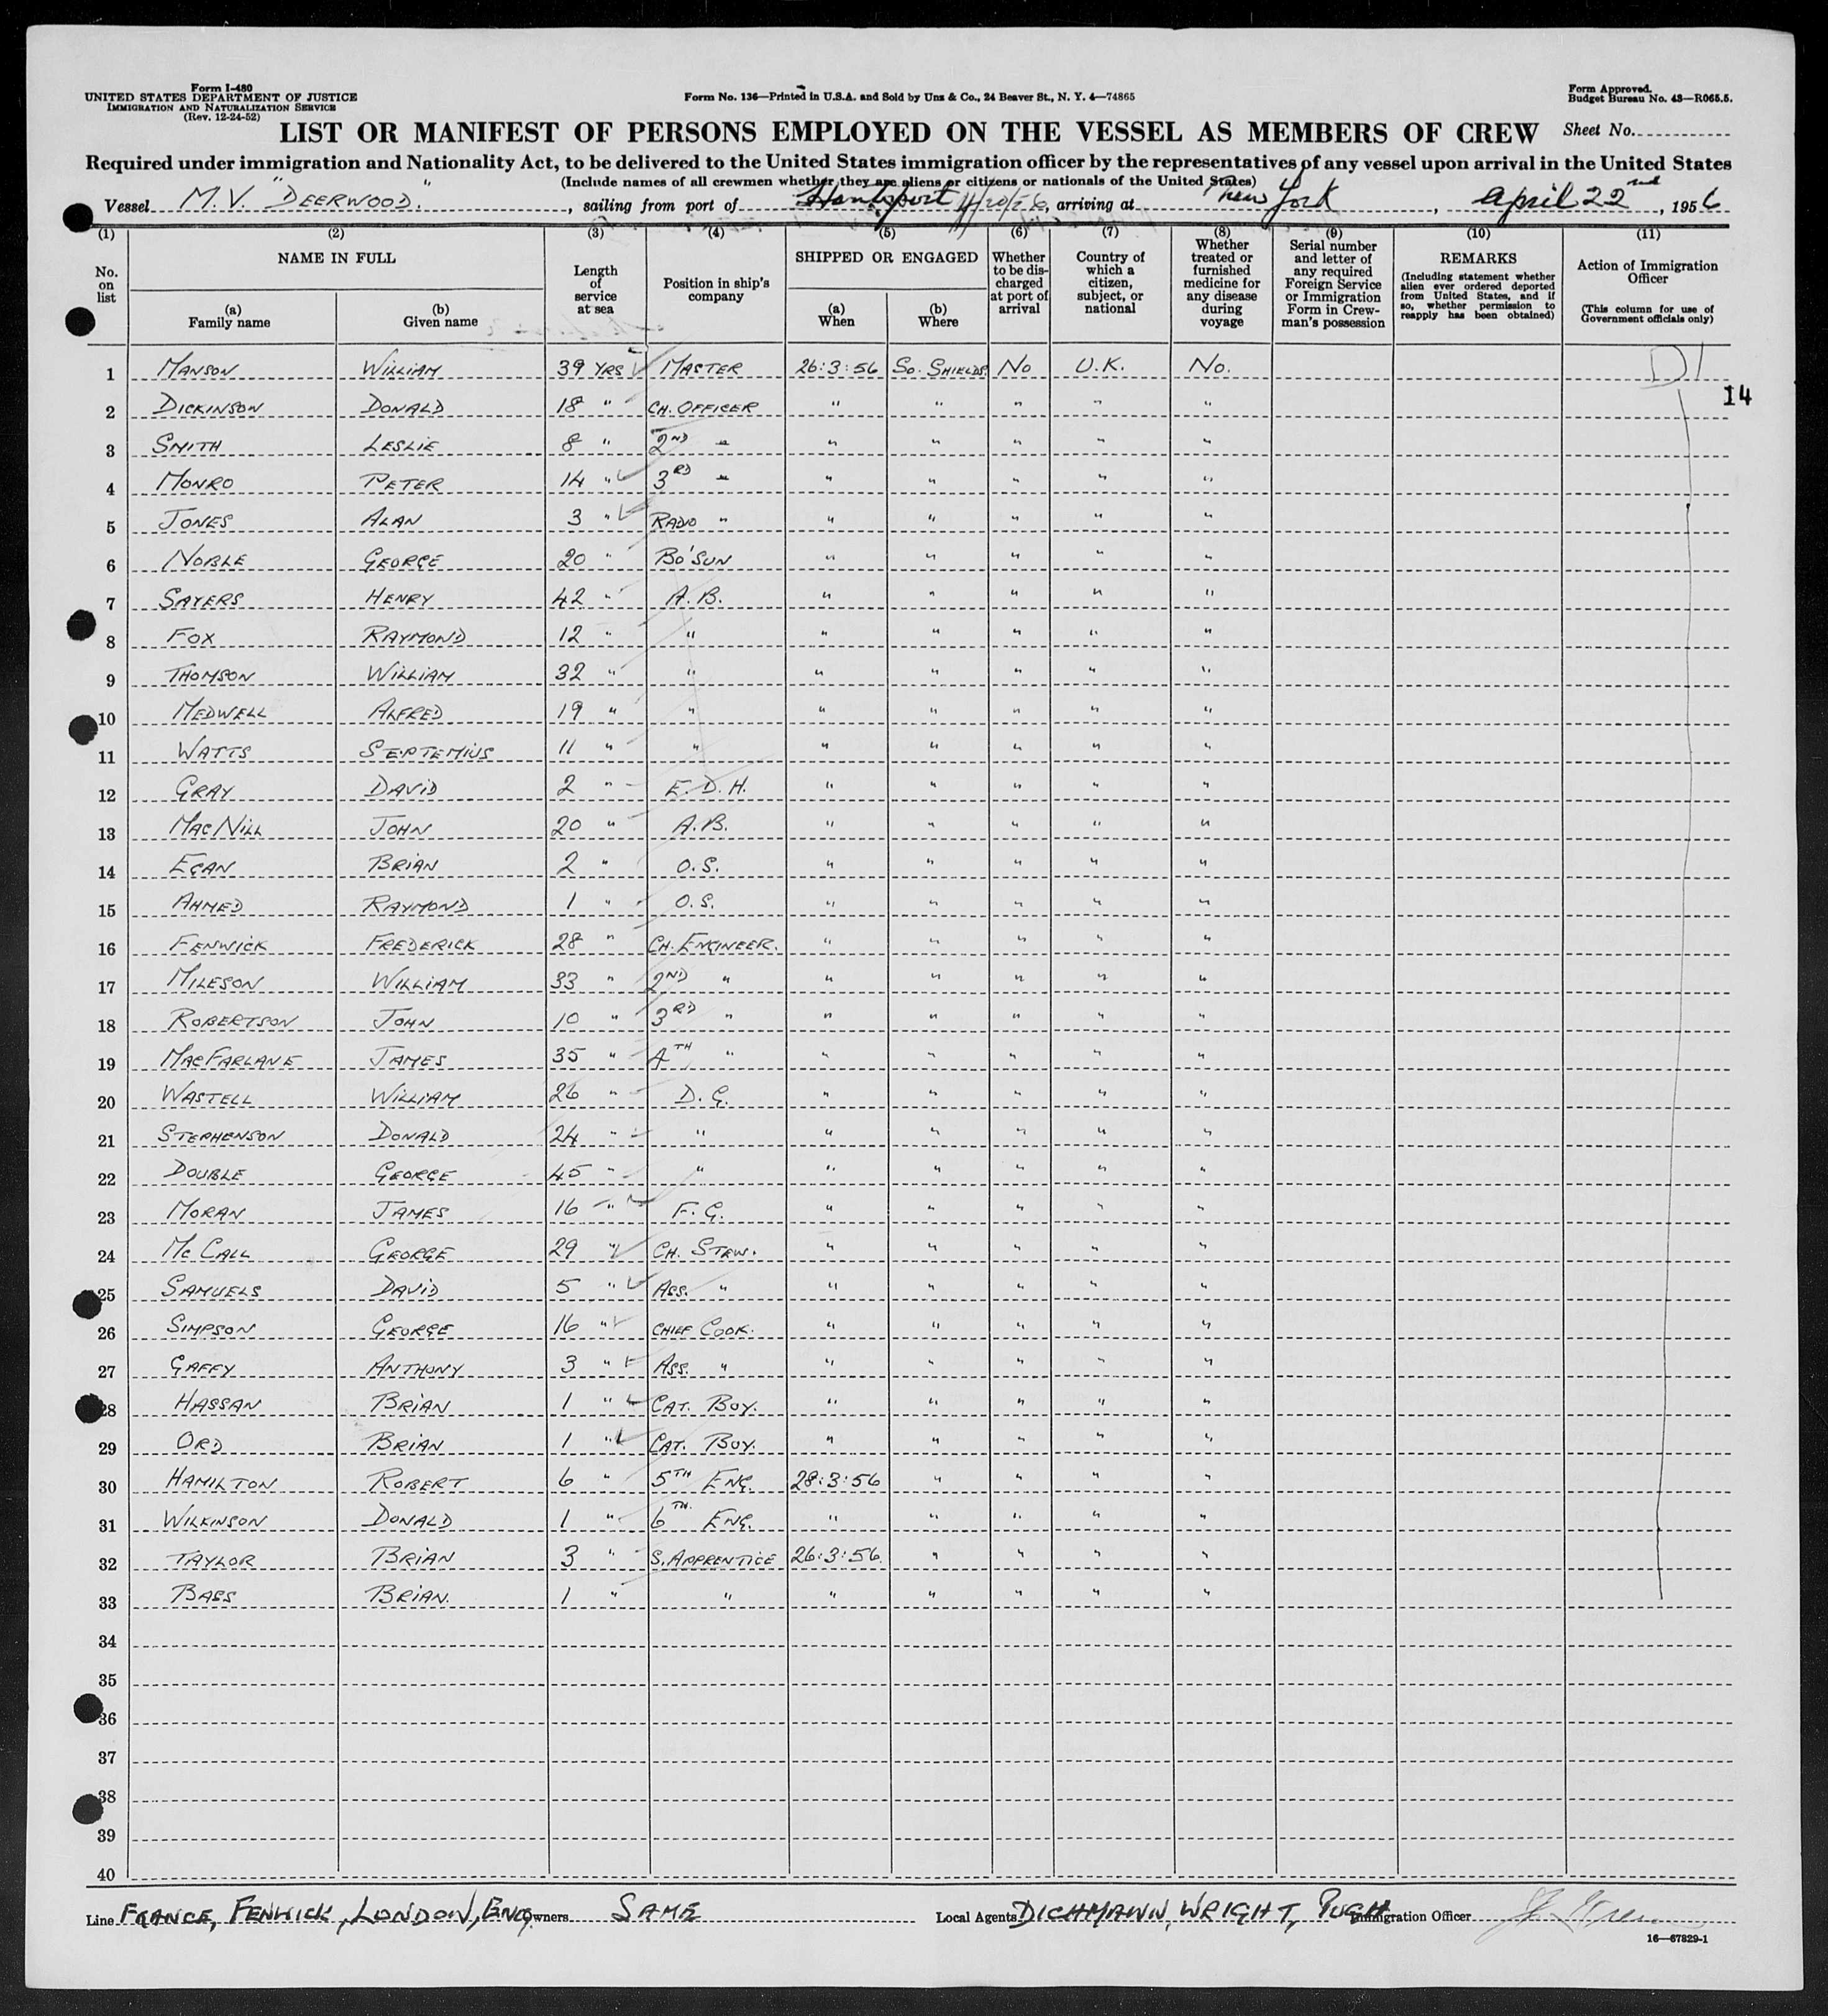 Form I-480
UNITED STATES DEPARTMENT OF JUSTICE
IMMIGRATION AND NATURALIZATION SERVICE
(Rev. 12-24-52)
Form No. 136—Printed in U.S.A. and Sold by Unz & Co., 24 Beaver St., N. Y. 4—74865
Form Approved.
Budget Bureau No. 43—R065.5.
LIST OR MANIFEST OF PERSONS EMPLOYED ON THE VESSEL AS MEMBERS OF CREW Sheet No.
Required under immigration and Nationality Act, to be delivered to the United States immigration officer by the representatives of any vessel upon arrival in the United States
(Include names of all crewmen whether they are aliens or citizens or nationals of the United States)
Vessel M.V. "DEERWOOD.", sailing from port of Hantsport 4/20/56, arriving at New York, April 22nd, 1956
(1) (2) (3) (4) (5) (6) (7) (8) (9) (10) (11)
No. on list
NAME IN FULL
(a) Family name
(b) Given name
Length of service at sea
Position in ship's company
SHIPPED OR ENGAGED
(a) When
(b) Where
Whether to be discharged at port of arrival
Country of which a citizen, subject, or national
Whether treated or furnished medicine for any disease during voyage
Serial number and letter of any required Foreign Service or Immigration Form in Crewman's possession
REMARKS
(Including statement whether alien ever ordered deported from United States, and if so, whether permission to reapply has been obtained)
Action of Immigration Officer
(This column for use of Government officials only)
1 MANSON WILLIAM 39 YRS MASTER 26:3:56 So. SHIELDS No U.K. No. D1
14
2 DICKINSON DONALD 18 " CH. OFFICER " " " " "
3 SMITH LESLIE 8 " 2ND " " " " " "
4 MONRO PETER 14 " 3RD " " " " " "
5 JONES ALAN 3 " RADIO " " " " " "
6 NOBLE GEORGE 20 " BO'SUN " " " " "
7 SAYERS HENRY 42 " A.B. " " " " "
8 FOX RAYMOND 12 " " " " " " "
9 THOMSON WILLIAM 32 " " " " " " "
10 MEDWELL ALFRED 19 " " " " " " "
11 WATTS SEPTEMIUS 11 " " " " " " "
12 GRAY DAVID 2 " E.D.H. " " " " "
13 MACNILL JOHN 20 " A.B. " " " " "
14 EGAN BRIAN 2 " O.S. " " " " "
15 AHMED RAYMOND 1 " O.S. " " " " "
16 FENWICK FREDERICK 28 " CH. ENGINEER. " " " " "
17 MILESON WILLIAM 33 " 2ND " " " " " "
18 ROBERTSON JOHN 10 " 3RD " " " " " "
19 MACFARLANE JAMES 35 " 4TH " " " " " "
20 WASTELL WILLIAM 26 " D.G. " " " " "
21 STEPHENSON DONALD 24 " " " " " " "
22 DOUBLE GEORGE 45 " " " " " " "
23 MORAN JAMES 16 " F.G. " " " " "
24 Mc CALL GEORGE 29 " CH. STEW. " " " " "
25 SAMUELS DAVID 5 " ASS. " " " " " "
26 SIMPSON GEORGE 16 " CHIEF COOK. " " " " "
27 GAFFY ANTHONY 3 " ASS. " " " " " "
28 HASSAN BRIAN 1 " CAT. BOY. " " " " "
29 ORD BRIAN 1 " CAT. BOY. " " " " "
30 HAMILTON ROBERT 6 " 5TH ENG. 28:3:56 " " " "
31 WILKINSON DONALD 1 " 6TH. ENG. " " " " "
32 TAYLOR BRIAN 3 " S. APPRENTICE 26:3:56. " " " "
33 BASS BRIAN. 1 " " " " " " "
34
35
36
37
38
39
40
Line FRANCE, FENWICK, LONDON, ENG. Owners SAME Local Agents DICHMANN, WRIGHT, PUGH Immigration Officer
16—67829-1